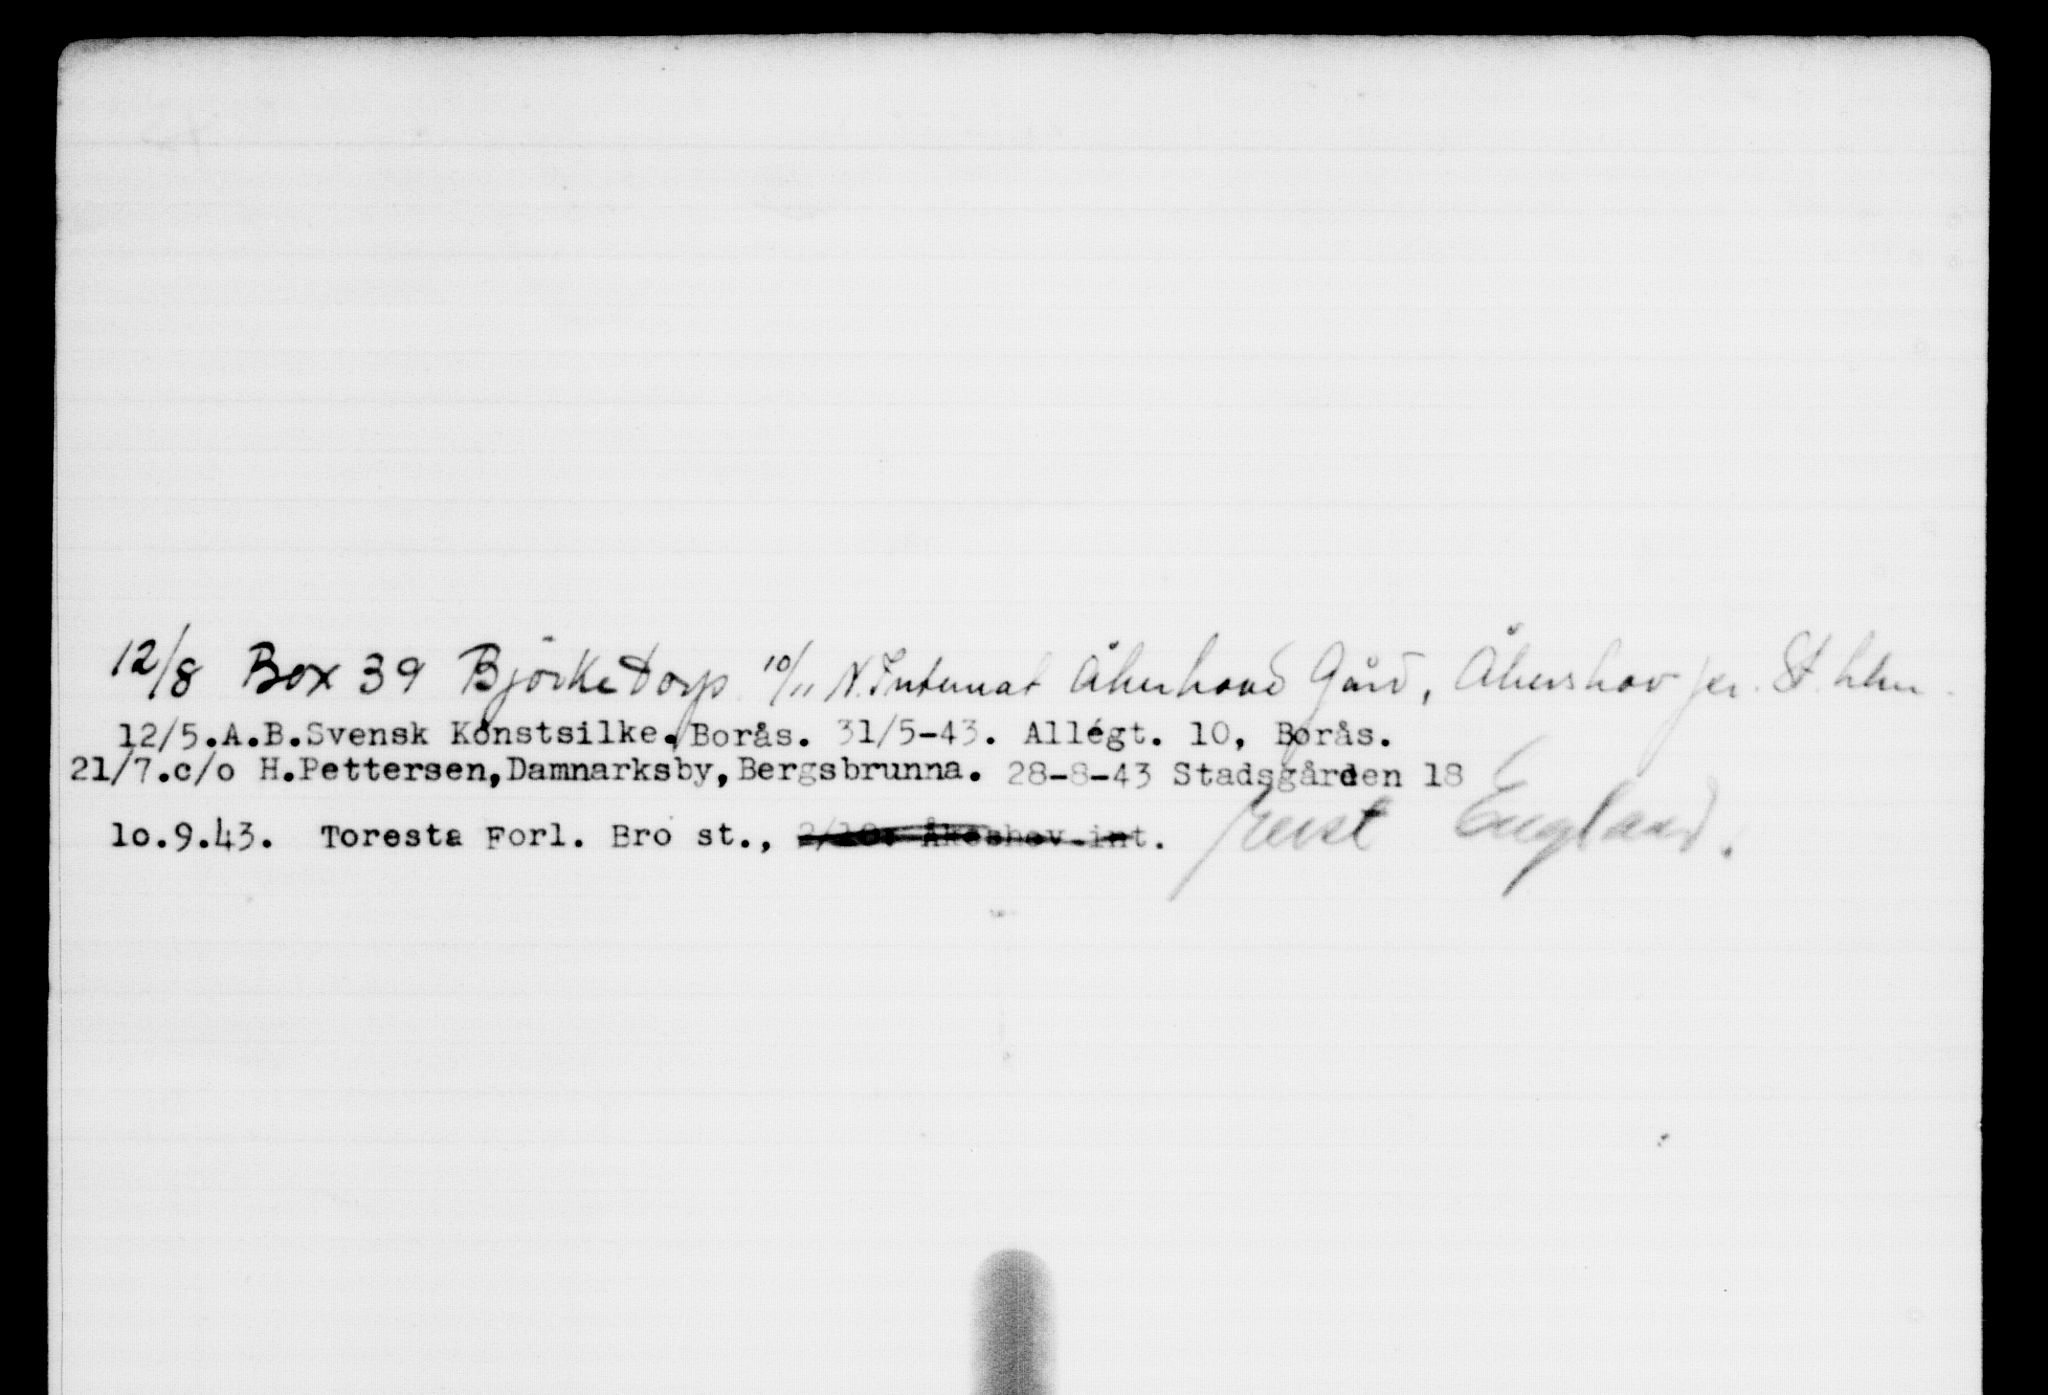 12/8 Box 39 Björkedorp 10/11 N. Internat Åkershovs Gård, Åkershov pr. St.hlm.
12/5.A.B.Svensk Konstsilke. Borås. 31/5-43. Allégt. 10, Borås.
21/7.c/o H.Pettersen,Damnarksby,Bergsbrunna. 28-8-43 Stadsgården 18
10.9.43. Toresta Forl. Bro st., 2/10. Åkeshov int. reist England.